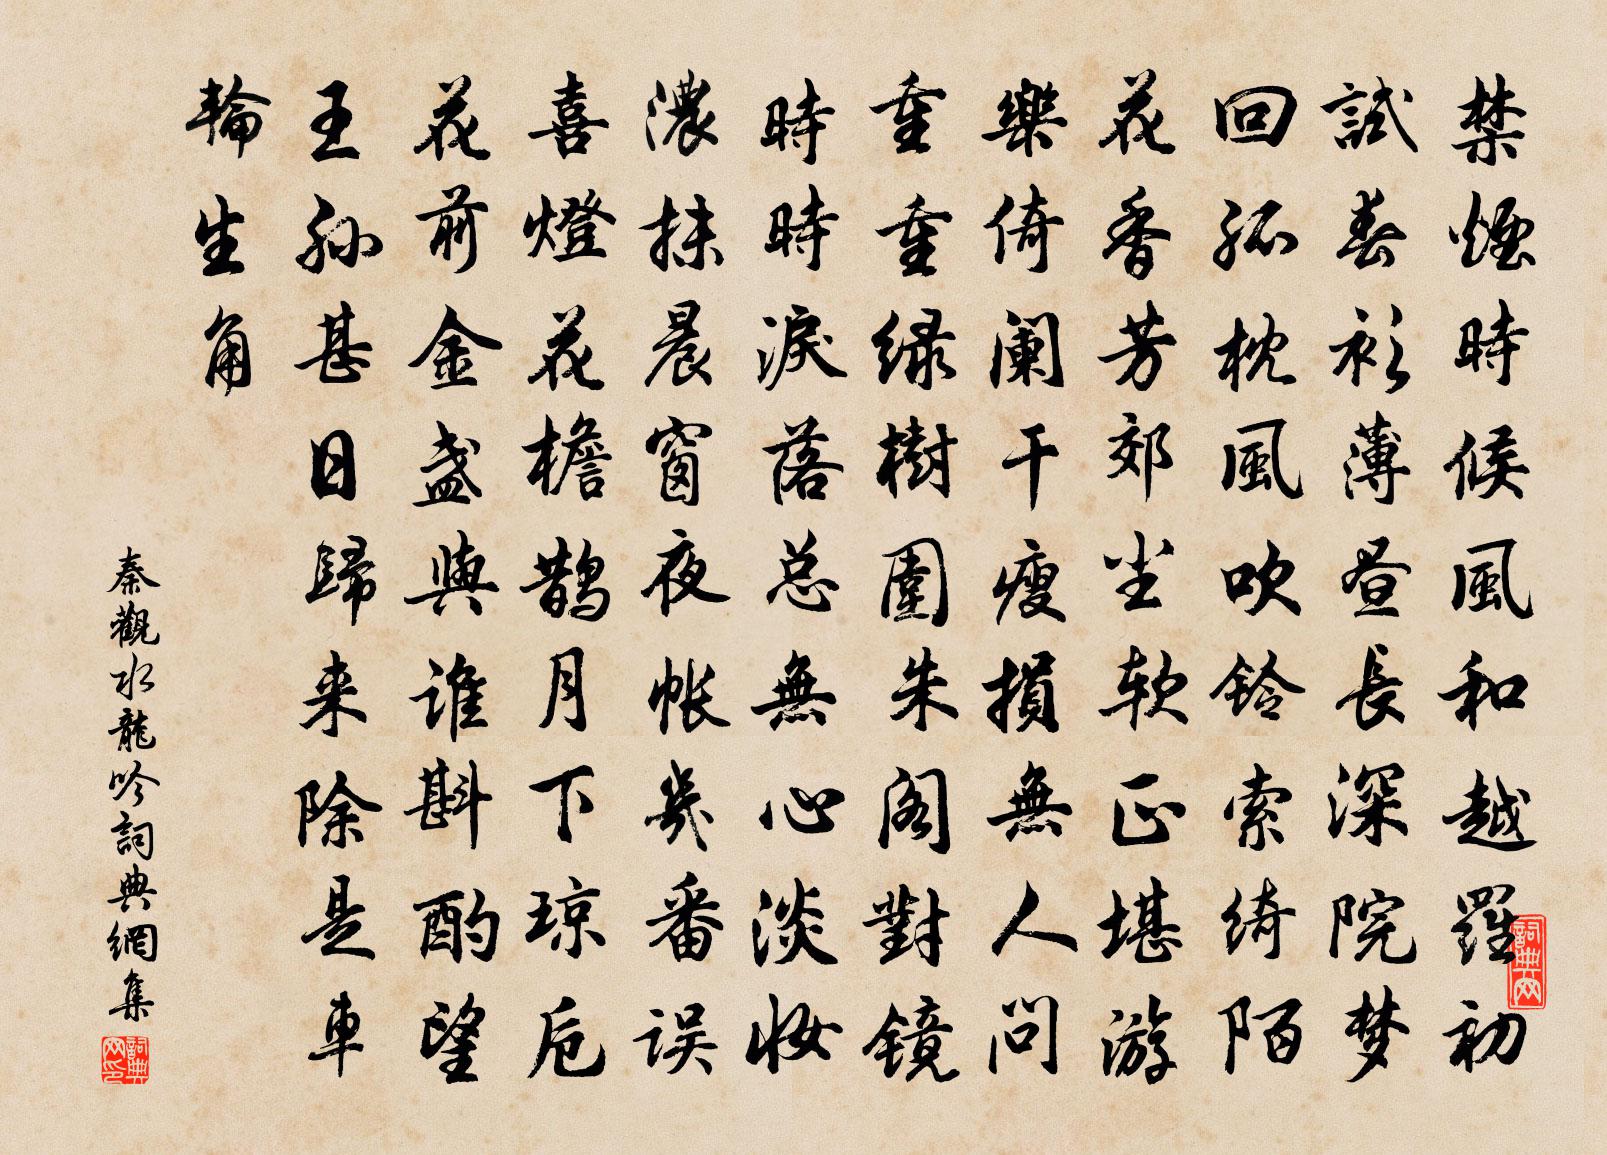 禁煙時候風和越羅初
試春衫薄昼長深院梦
回孤枕風吹鈴索绮陌
花香芳郊尘软正堪游
樂倚阑干瘦損無人問
重重绿樹圍朱阁對镜
時時淚落总無心淡妝
濃抹晨窗夜帐幾番误
喜燈花檐鹊月下琼卮
花前金盏與谁斟酌望
王孙甚日歸来除是車
輪生角
秦觀水龍吟詞典網集
詞典网
詞典网印